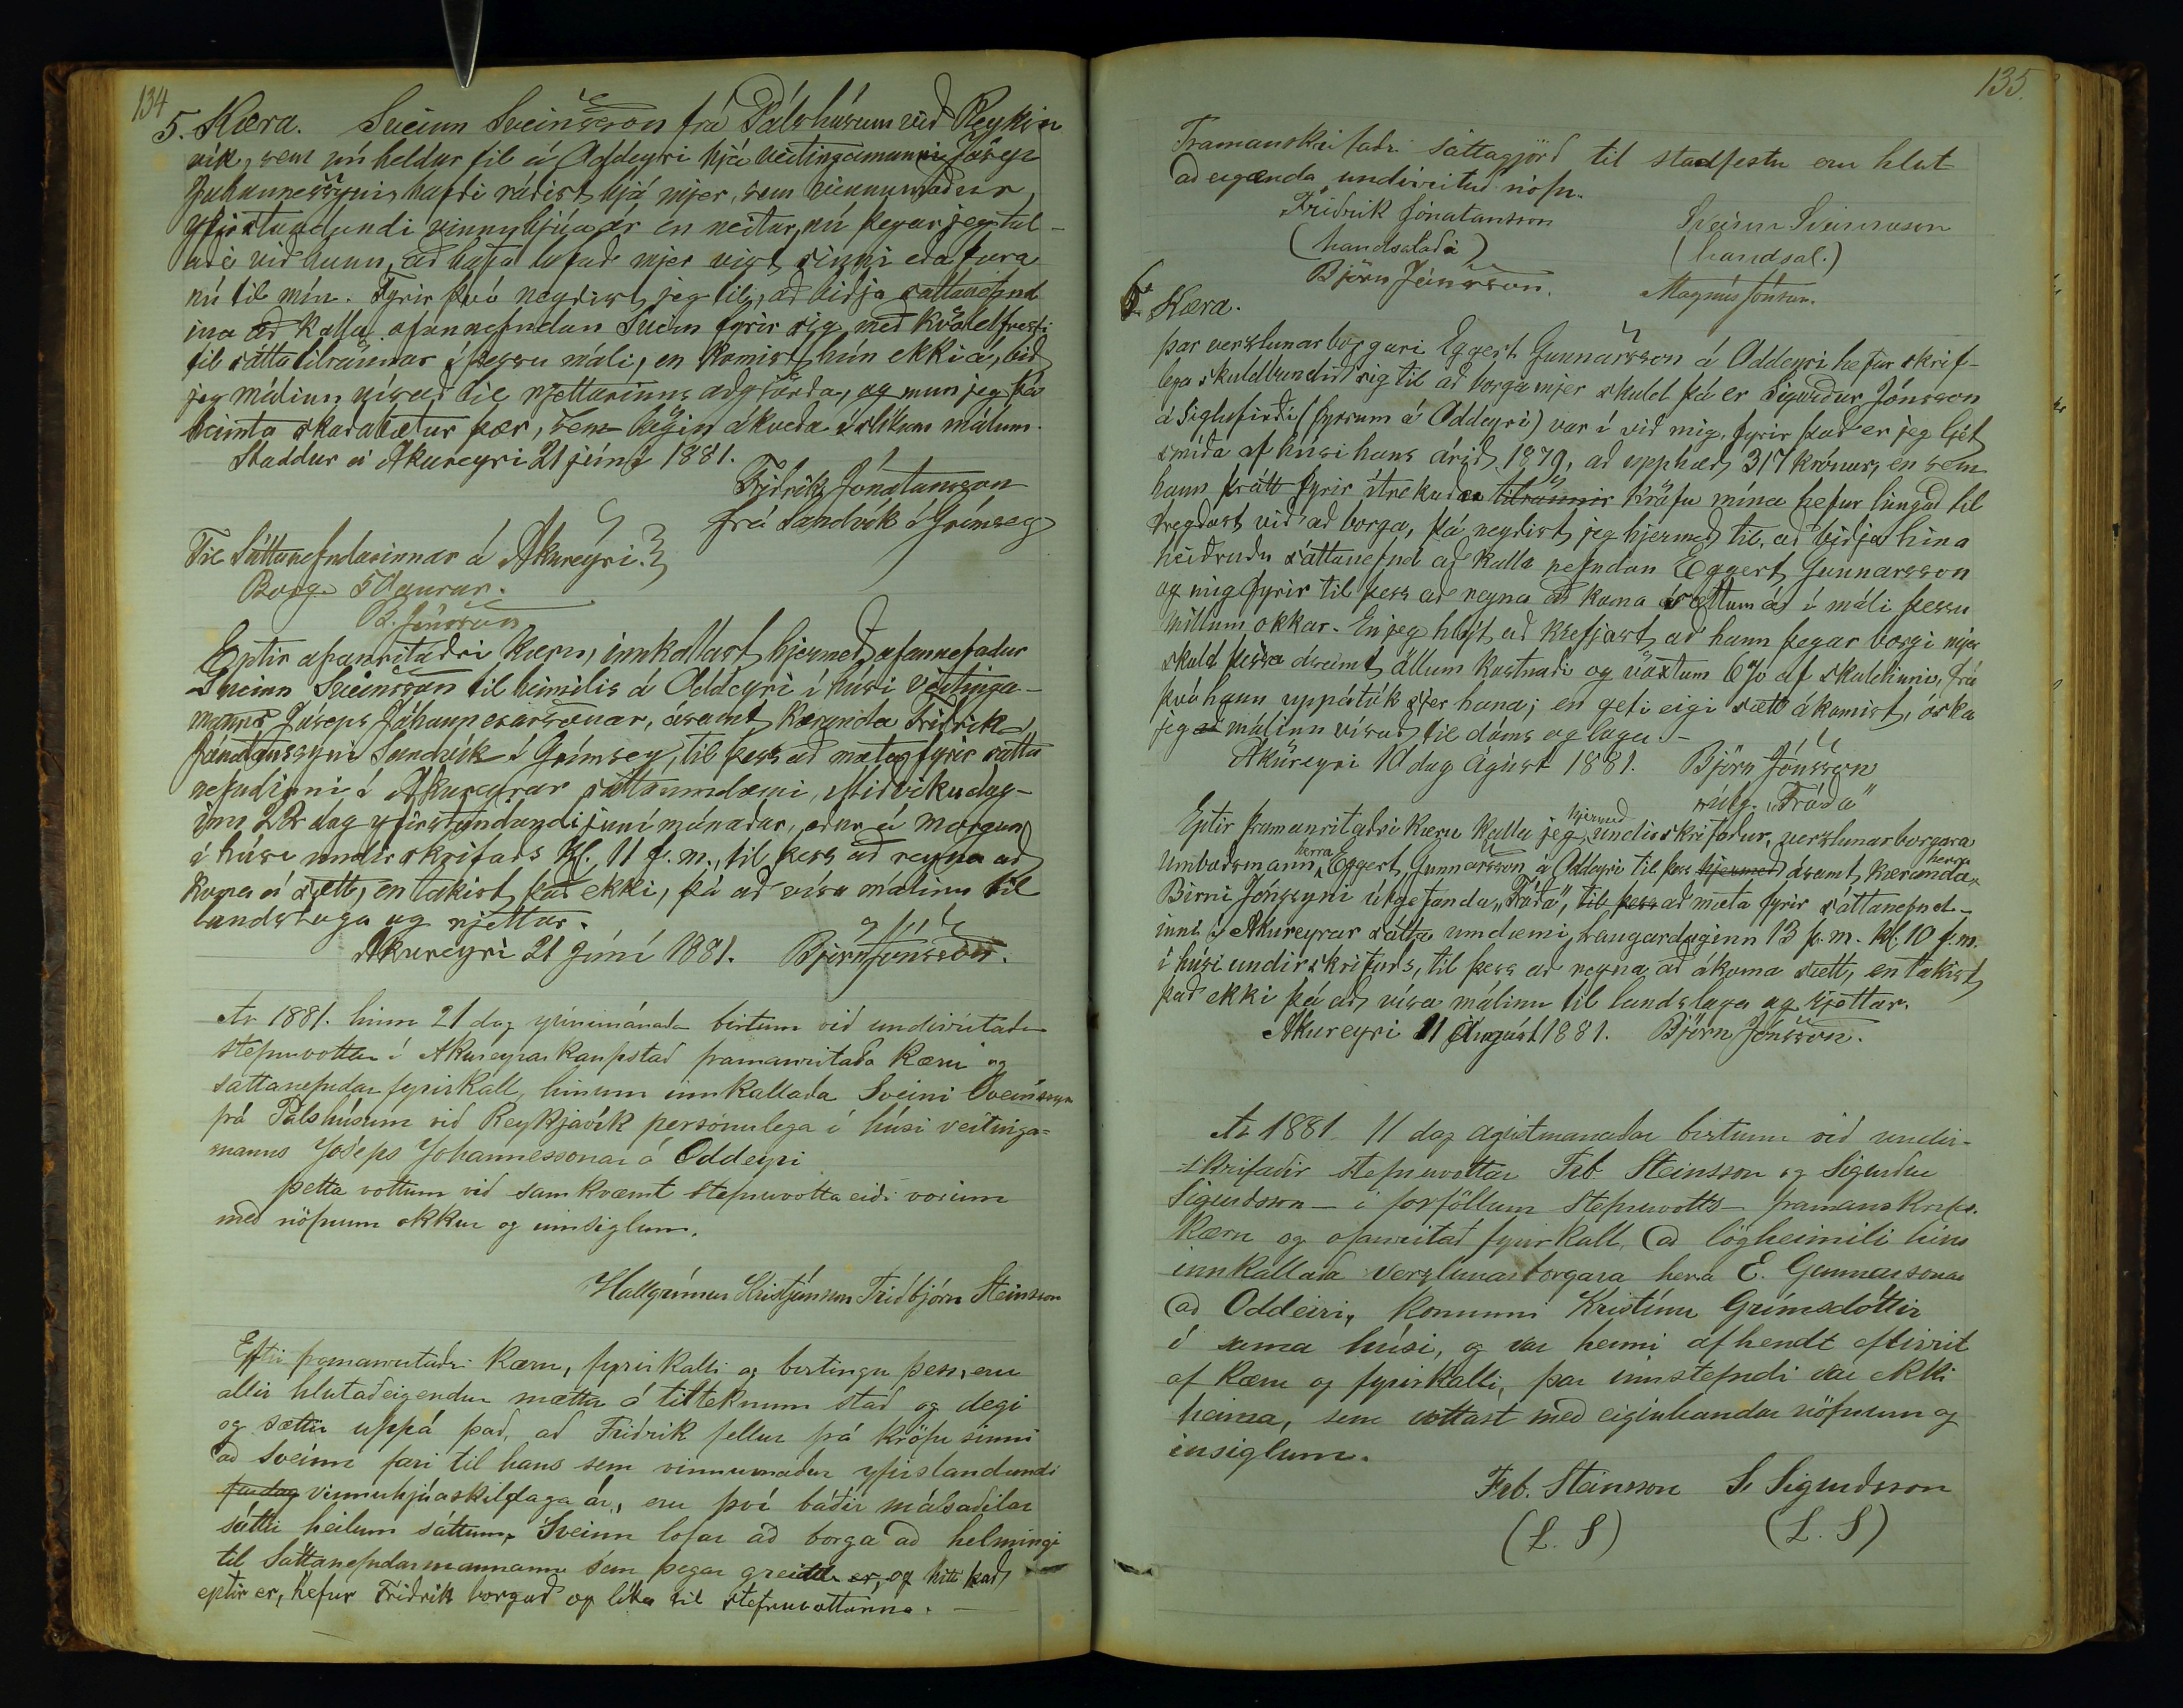 134
5. Kæra. Sveinn Sveinsson frá Pálshúsum við Reykja
vík, sem nú heldur til á Oddeyri hjá veitingamanni Jósep
Jóhannessyni, hafði ráðist hjá mjer, sem vinnumaður
yfirstandandi vinnuhjúaár en neitar, nú þegar jeg tal-
aði við hann, að hafa lofað mjer vist sinni eða fara
nú til mín. Fyrir því neyðist jeg til, að biðja sáttanefnd
ina að kalla ofannefndan Svein fyrir sig með kvöldfresti
til sáttatilraunar í þessu máli, en komist hún ekki á, bið
jeg málinu vísað til rjettarinns aðgjörða, og mun jeg þá
heimta skaðabætur þær, sem lögin ákveða í slíkum málum.
Staddur á Akureyri 21 júní 1881.
Friðrik Jónatansson
frá Sandvík á Grímsey
Til Sáttanefndarinnar á Akureyri.
Borg. 50 aurar.
B. Jónsson
Eptir ofanritaðri kæru, innkallast hjermeð ofannefndur
Sveinn Sveinsson til heimilis á Oddeyri í húsi veitinga-
manns Jóseps Jóhannessonar, ásamt kæranda Friðrik
Jónatanssyni Sandvík í Grímsey, til þess að mæta fyrir sátta
nefndinni í Akureyrar sáttaumdæmi, Miðvikudag-
inn 22 dag yfirstandandi júnímánaðar, eður á morgun
í húsi undirskrifaðs kl. 11 f.m., til þess að reyna að
koma á sætt, en takist það ekki, þá að vísa málinu til
landslaga og rjettar.
Akureyri 21 Júní 1881. Björn Jónsson.
Ár 1881. hinn 21 dag júnímánaðar birtum við undirritaðir
stefnuvottar í Akureyrarkaupstað framanritaða kæru og
sáttanefndar fyrirkall, hinum innkallaða Sveini Sveinssyni
frá Pálshúsum við Reykjavík persónulega í húsi veitinga-
manns Jóseps Jóhannessonar á Oddeyri
Þetta vottum við samkvæmt stefnuvotta eiði vorum
með nöfnum okkur og innsiglum.
Hallgrímur Kristjánsson Friðbjörn Steinsson
Eftir framanritaðri kæru, fyrirkalli og birtingu þess, eru
allir hlutaðeigendur mættir á tilteknum stað og degi
og sættir uppá það, að Friðrik fellur frá kröfu sinni
að Sveinn fari til hans sem vinnumaður yfirstandandi
vinnuhjúaskildaga ár, eru því báðir málsaðilar
sáttir heilum sáttum, Sveinn lofar að borga að helmingi
til Sáttanefndarmannanna sem þegar greitt er, og hitt það
eptir er, hefur Friðrik borgað og líka til stefnuvottanna.
135.
Framanskrifaðri sáttagjörð til staðfestu eru hlut
aðeigenda undirrituð nöfn.
Friðrik Jónatansson Sveinn Sveinsson
(handsalaði) (handsal.)
Björn Jónsson. Magnús Jónsson.
6. Kæra.
Þar verzlunarborgari Eggert Gunnarsson á Oddeyri hefur skrif-
lega skuldbundið sig til að borga mjer skuld þá er Sigurður Jónsson
á Siglufirði (fyrrum á Oddeyri) var í við mig, fyrir það er jeg ljet
smíða af húsi hans árið 1879, að upphæð 317 krónur, en sem
hann þrátt fyrir ítrekaða tilraunir kröfu mína hefur hingað til
tregðast við að borga, þá neyðist jeg hjermeð til, að biðja hina
heiðruðu sáttanefnd að kalla nefndan Eggert Gunnarsson
og mig fyrir til þess að reyna að koma sættum á í máli þessu
millum okkar. En jeg hlýt að krefjast, að hann þegar borgi mjer
skuld þessa ásamt öllum kostnaði og vöxtum 6% af skuldinni, frá
því hann uppátók sjer hana; en geti eigi sætt ákomist, óska
jeg að málinu vísað til dóms og laga.-
Akureyri 10 dag Ágúst 1881. Björn Jónsson
útg. "Fróða"
Eptir framanritaðri kæru kalla jeg hjermeð undirskrifaður, verzlunarborgara
umboðsmann herra Eggert Gunnarsson á Oddeyri til þess hjermeð ásamt kæranda herra
Birni Jónssyni útgefanda "Fróða", til þess að mæta fyrir sáttanefnd-
inni í Akureyrar sátta umdæmi, laugardaginn 13 þ.m. kl. 10 f.m.
í húsi undirskrifaðs, til þess að reyna að ákoma sætt, en takist
það ekki þá að vísa málinu til landslaga og rjettar.
Akureyri 11 Ágúst 1881. Björn Jónsson.
Ár 1881. 11 dag ágústmánaðar birtum við undir-
skrifaðir stefnuvottar Frb. Steinsson og Sigurður
Sigurðsson - í forföllum stefnuvotts - framanskrif.
kæru og ofanritað fyrirkall, að lögheimili hins
innkallaða verzlunarborgara herra E. Gunnarssonar
að Oddeiri, konunni Kristínu Grímsdóttir
í sama húsi, og var henni afhendt eftirrit
af kæru og fyrirkalli, þar innstefndi var ekki
heima, sem vottast með eiginhandar nöfnum og
insiglum.
Frb. Steinsson S. Sigurðsson
(L. S) (L. S)